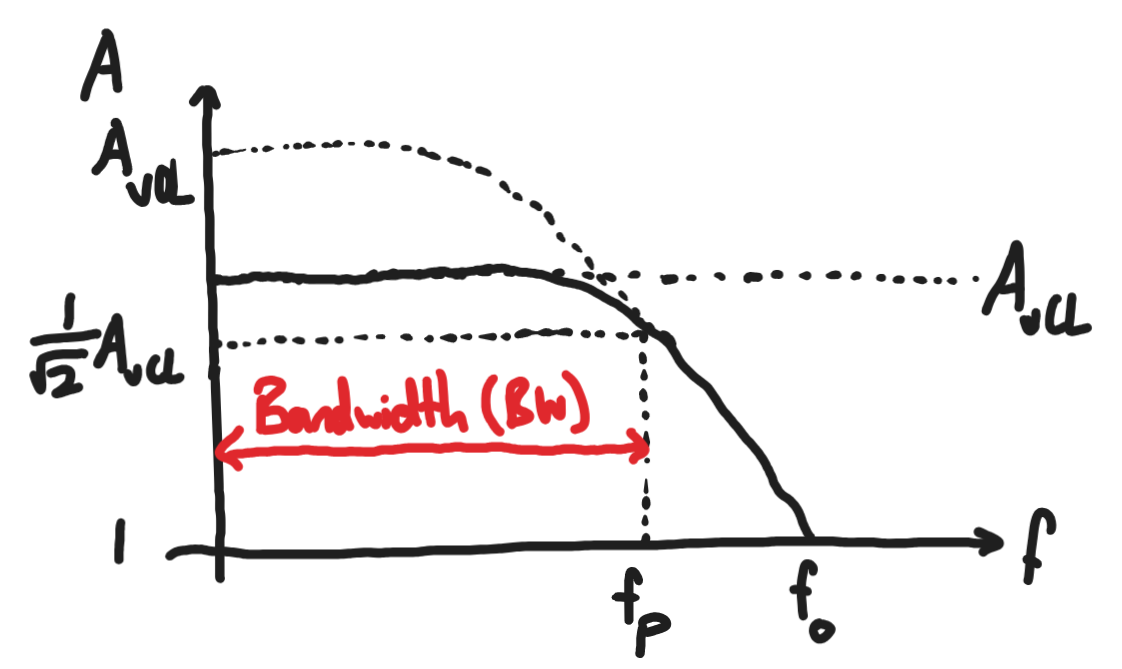 A
AvOL
AvCL
1/√2 AvCL
Bandwidth (BW)
1
f
fp
fo